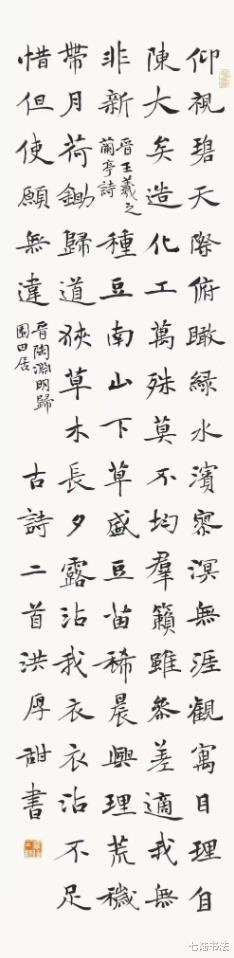 仰視碧天際俯瞰緑水濱寥溟無涯觀寓目理自
陳大矣造化工萬殊莫不均羣籟雖參差適我無
非新
晉王羲之
蘭亭詩
種豆南山下草盛豆苗稀晨興理荒穢
帶月荷鋤歸道狹草木長夕露沾我衣衣沾不足
惜但使願無違
晉陶淵明歸
園田居
古詩二首洪厚甜書